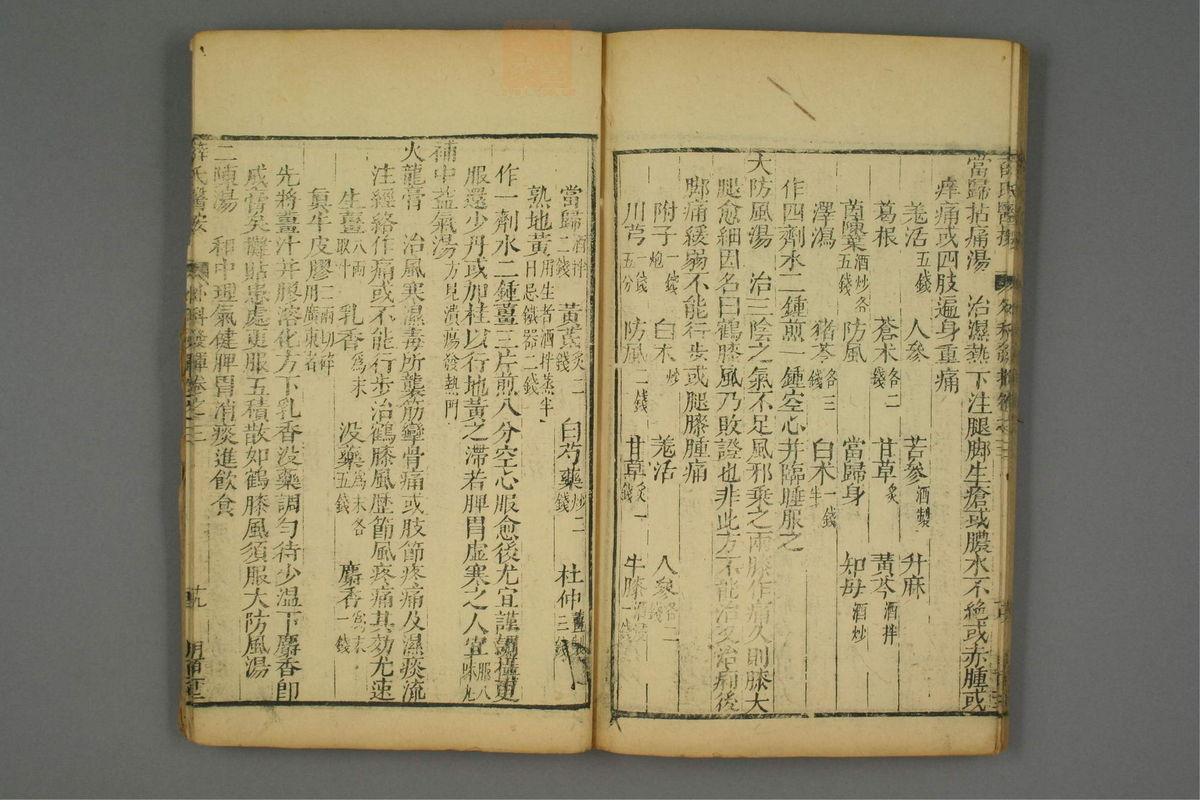 當歸拈痛湯　治濕熱下注腿脚生瘡或膿水不絶或赤腫或
痒痛或四肢遍身重痛
羗活五錢　人參　苦參酒製　升麻
葛根　蒼术各二錢　甘草炙　黄芩酒拌
茵陳葉酒炒各五錢　防風　當歸身　知母酒炒
澤瀉　猪苓各三錢　白术一錢半
作四劑水二鍾煎一鍾空心并臨睡服之
大防風湯　治三陰之氣不足風邪乘之兩膝作痛久則膝大
腿愈細因名曰鶴膝風乃敗證也非此方不能治又治痢後
脚痛緩弱不能行步或腿膝腫痛
附子炮一錢　白术炒　羗活　人參各二錢
川芎一錢五分　防風二錢　甘草炙一錢　牛膝一錢
當歸酒拌二錢　黄芪炙二錢　白芍藥炒二錢　杜仲三錢
熟地黄用生者酒拌蒸半日忌鐵器二錢
作一劑水二鍾薑三片煎八分空心服愈後尤宜謹調攝更
服還少丹或加桂以行地黄之滯若脾胃虚寒之人宜服八味丸
補中益氣湯方見潰瘍發熱門
火龍膏　治風寒濕毒所襲筋攣骨痛或肢節疼痛及濕痰流
注經絡作痛或不能行步治鶴膝風歷節風疼痛其効尤速
生薑八兩取汁　乳香爲末　没藥爲末各五錢　麝香爲末一錢
真牛皮膠二兩切碎用廣東者
先將薑汁并膠溶化方下乳香没藥調勻待少温下麝香即
成膏矣攤貼患處更服五積散如鶴膝風須服大防風湯
二陳湯　和中理氣健脾胃消痰進飲食
薛氏醫案　外科發揮卷之三　廿九